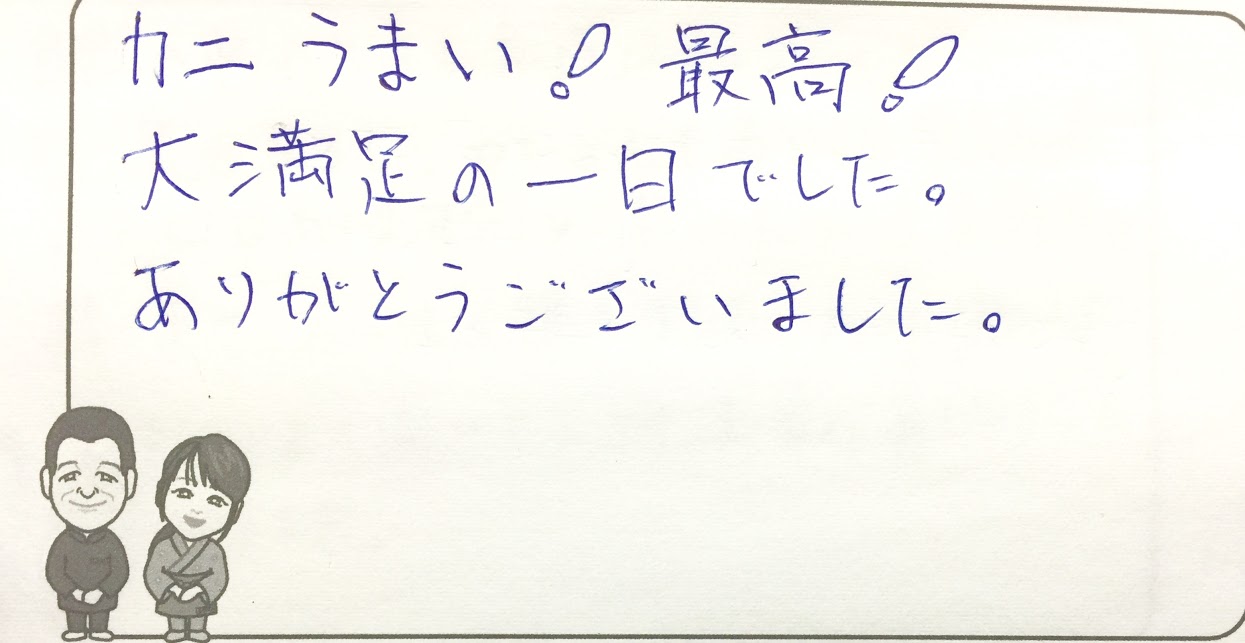 カニ うまい! 最高!
大満足の一日でした。
ありがとうございました。